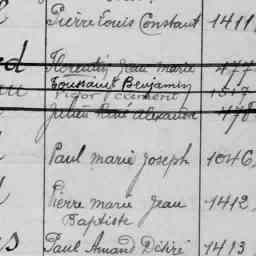 Pierre Louis Constant 1411
Florentin Jean Marie 477
Toussaint Benjamin
Victor Clément 1517
Julien René Alexandre 478
Paul Marie Joseph 1046
Pierre Marie Jean 1412
Baptiste
Paul Amand Désiré 1413